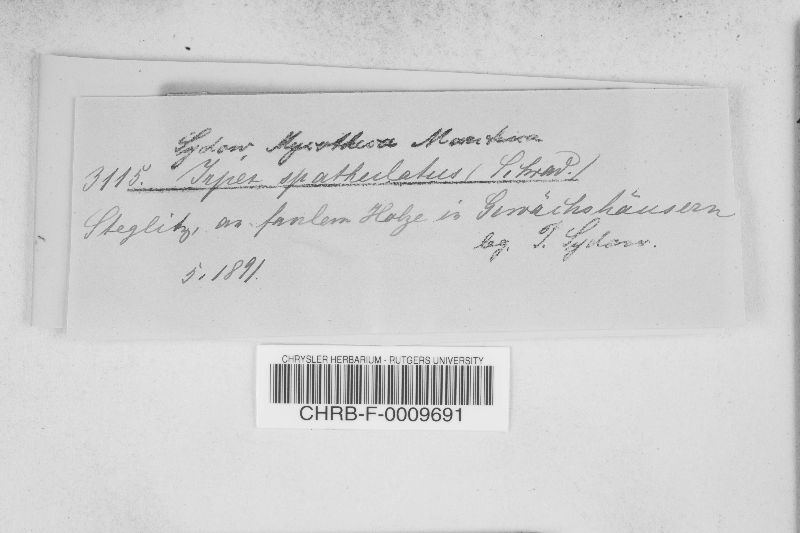 Sydow Mycotheca Marchica
3115. Irpex spathulatus (Schrad.)
Steglitz, an faulem Holze in Gewächshäusern
leg. P. Sydow.
5. 1891.
CHRYSLER HERBARIUM - RUTGERS UNIVERSITY
CHRB-F-0009691